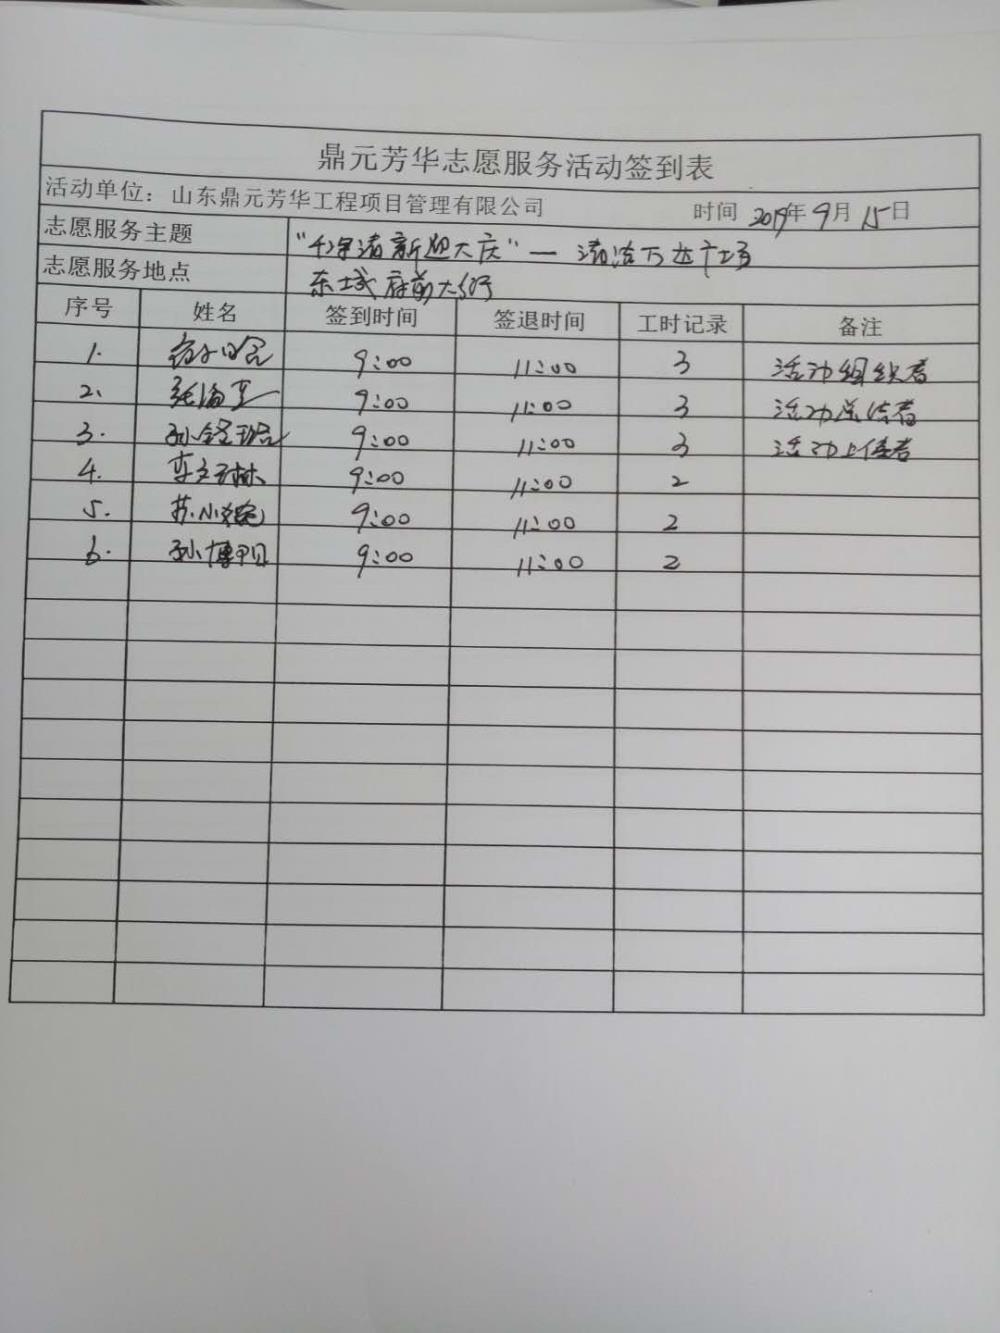 鼎元芳华志愿服务活动签到表
活动单位：山东鼎元芳华工程项目管理有限公司 时间 2019年9月15日
志愿服务主题 "清新迎大庆"— 清洁万达广场
志愿服务地点 东城府前大街
序号 姓名 签到时间 签退时间 工时记录 备注
1. 9:00 11:00 3 活动组织者
2、 张海玉 9:00 11:00 3 活动总结者
3. 9:00 11:00 3 活动上传者
4. 9:00 11:00 2
5. 苏小 9:00 11:00 2
6. 孙博 9:00 11:00 2